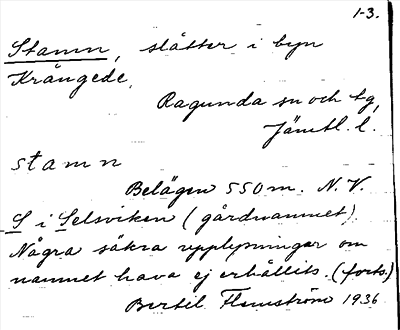 1-3.
Stamn, slåtter i byn
Krångede,
Ragunda sn och tg,
Jämtl. l.
stamn
Belägen 550 m. N.V.
S i Selsviken (gårdnamnet)
Några säkra upplysningar om
namnet hava ej erhållits. (forts.)
Bertil Flemström 1936